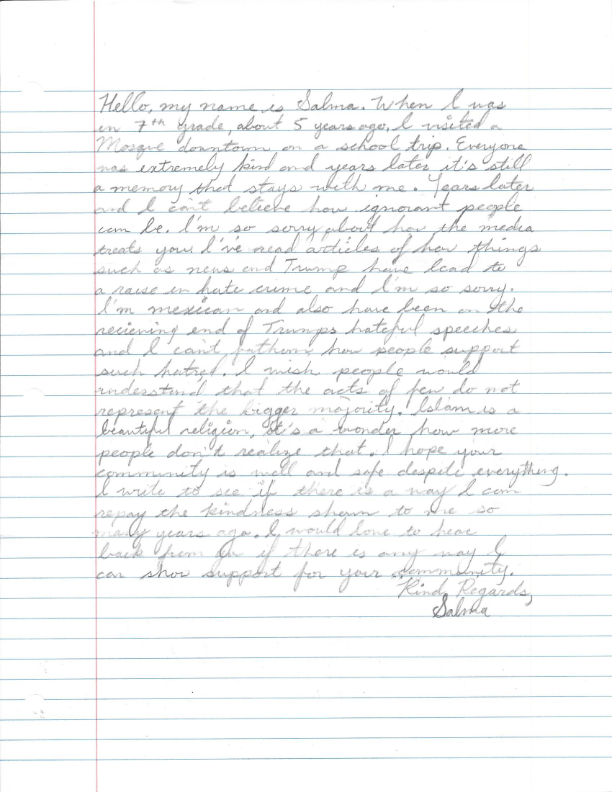 Hello, my name is Salma. When I was
in 7th grade, about 5 years ago, I visited a
Mosque downtown on a school trip. Everyone
was extremely kind and years later it's still
a memory that stays with me. Years later
and I can't believe how ignorant people
can be. I'm so sorry about how the media
treats you. I've read articles of how things
such as news and Trump have lead to
a raise in hate crime and I'm so sorry.
I'm mexican and also have been on the
recieving end of Trumps hateful speeches
and I can't fathom how people support
such hatred. I wish people would
understand that the acts of few do not
represent the bigger majority. Islam is a
beautiful religion, it's a wonder how more
people don't realize that. I hope your
community is well and safe despite everything.
I write to see if there is a way I can
repay the kindness shown to me so
many years ago. I would love to hear
back from you if there is any way I
can show support for your community.
Kind Regards,
Salma